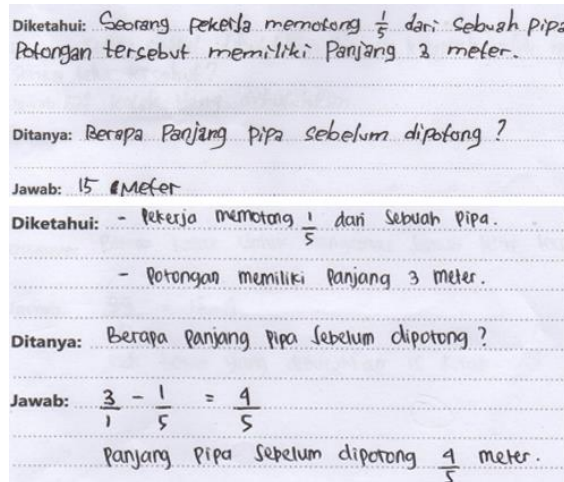 Diketahui: Seorang pekerja memotong 1/5 dari sebuah pipa
Potongan tersebut memiliki Panjang 3 meter.
Ditanya: Berapa Panjang pipa sebelum dipotong ?
Jawab: 15 Meter
Diketahui: - Pekerja memotong 1/5 dari sebuah pipa.
- Potongan memiliki Panjang 3 meter.
Ditanya: Berapa panjang pipa sebelum dipotong ?
Jawab: 3/1 - 1/5 = 4/5
Panjang pipa sebelum dipotong 4/5 meter.